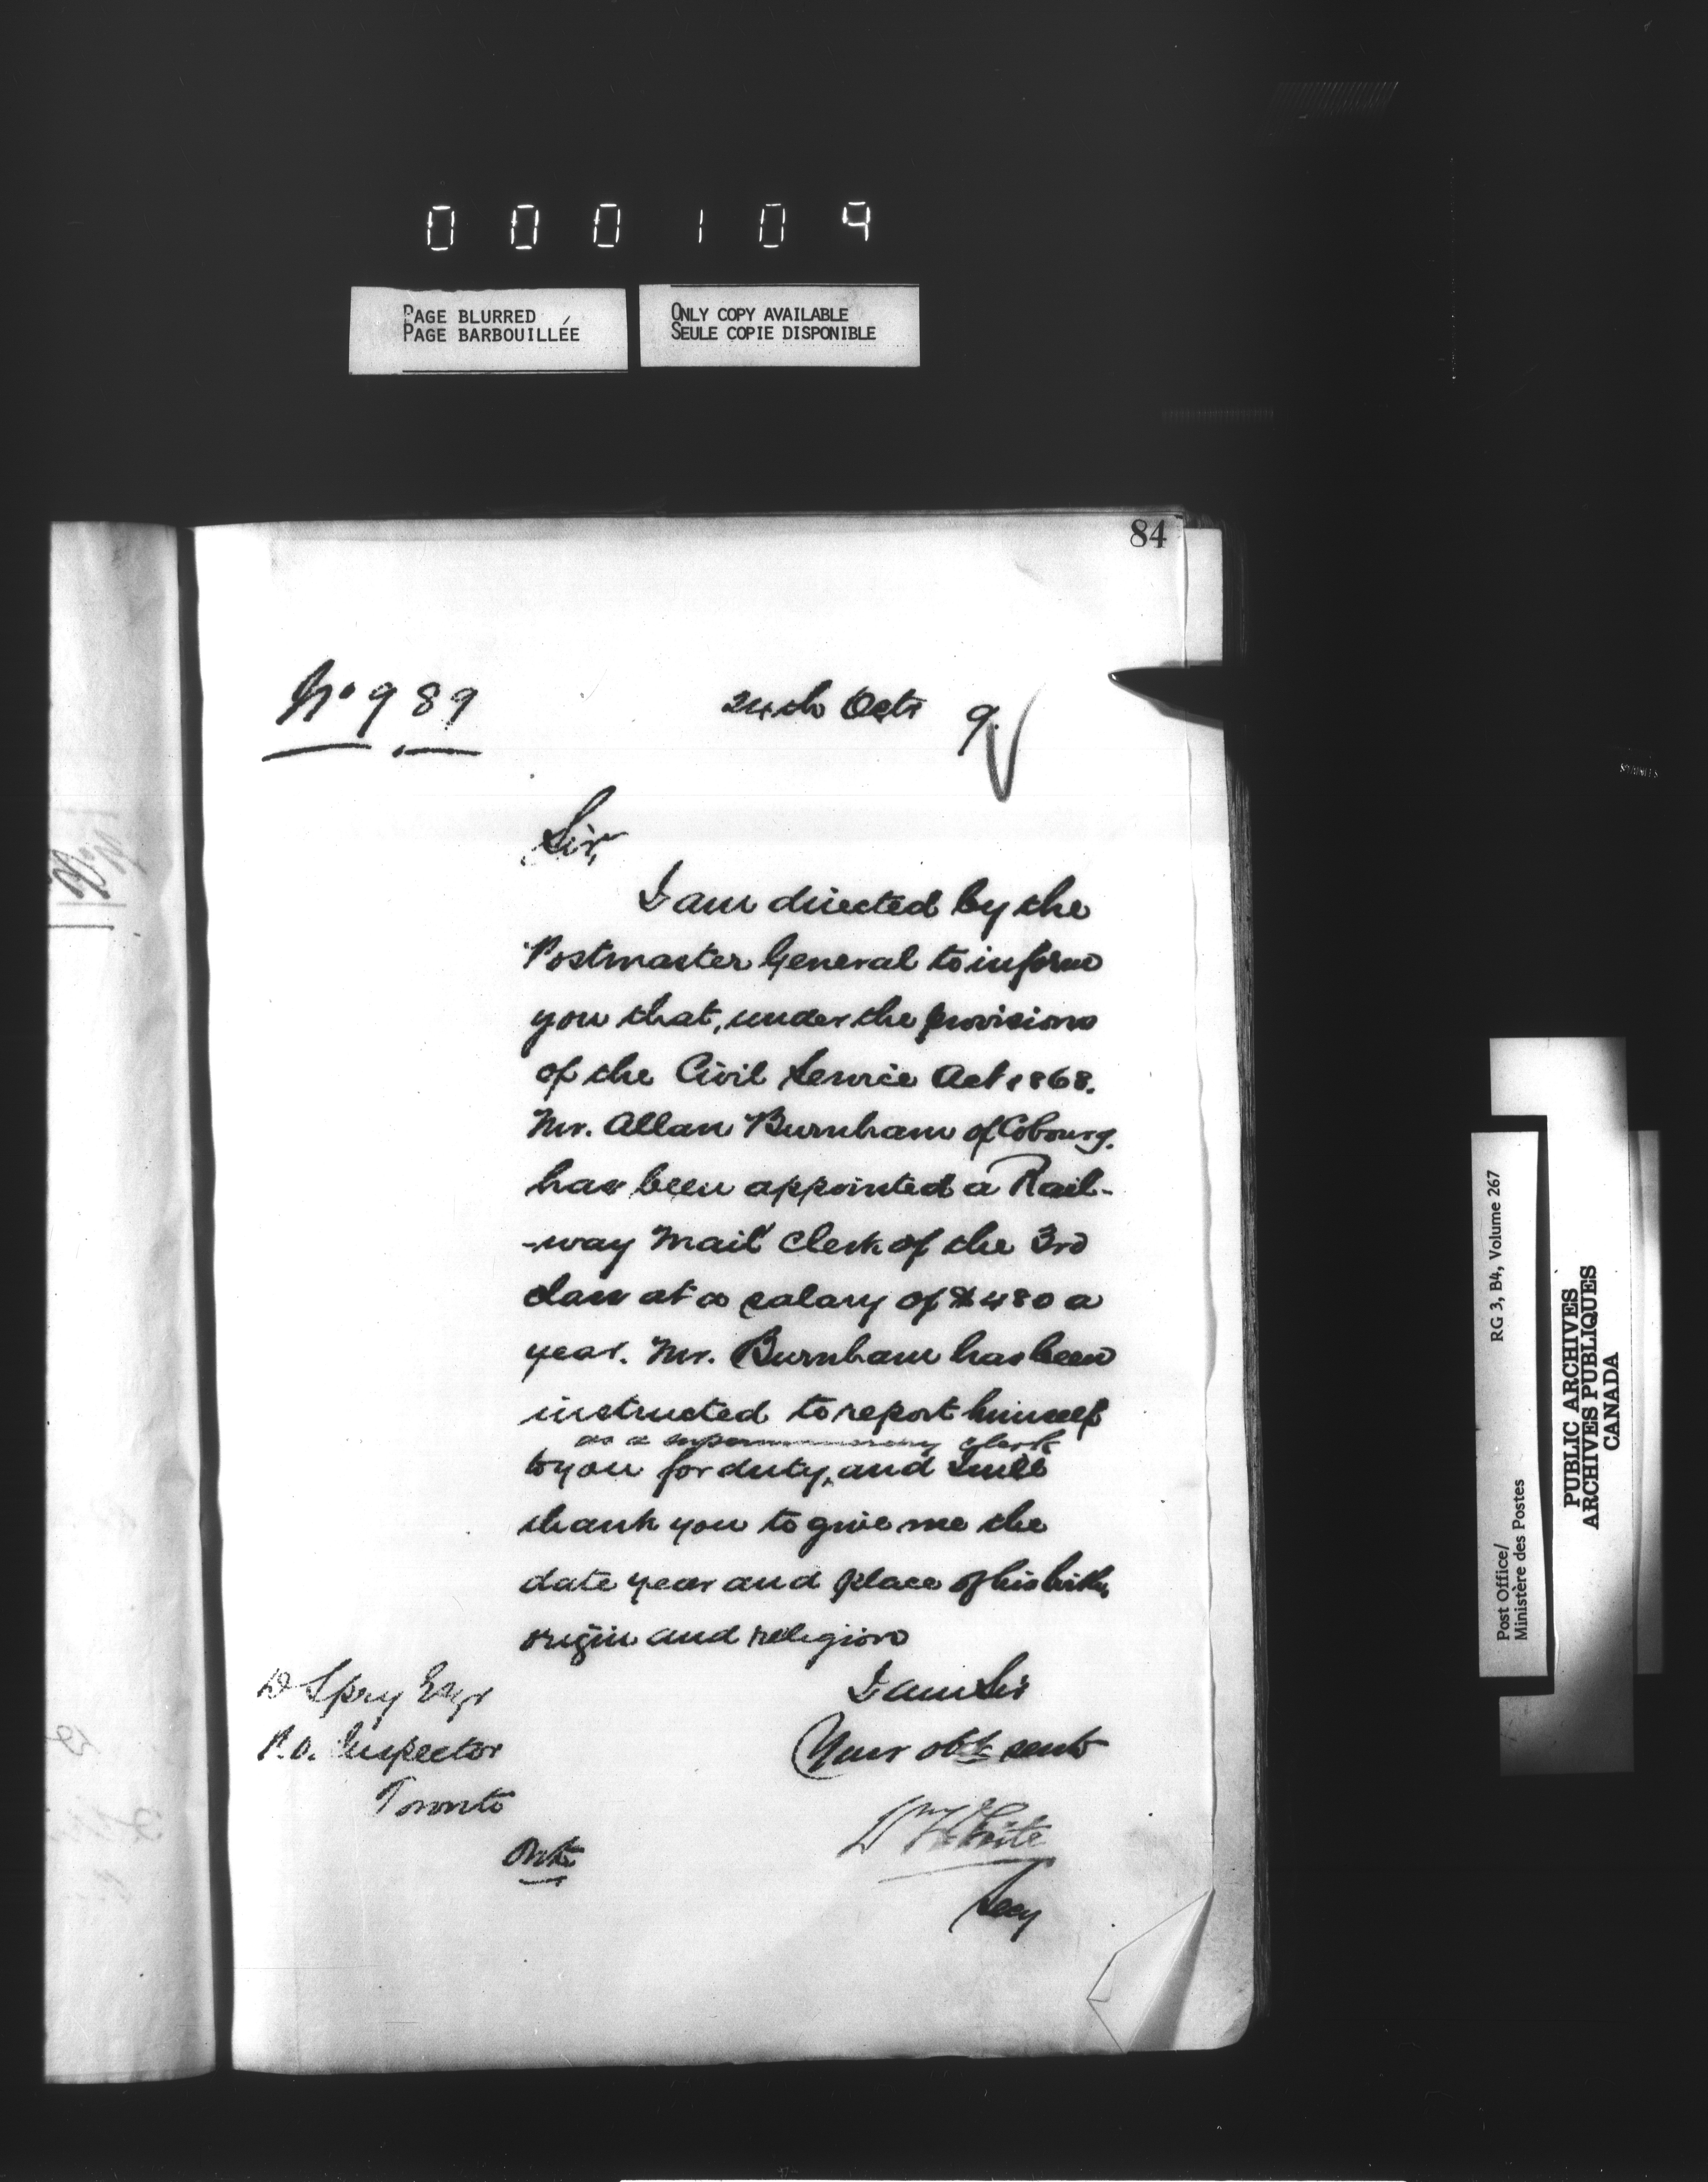 000109
PAGE BLURRED
PAGE BARBOUILLÉE
ONLY COPY AVAILABLE
SEULE COPIE DISPONIBLE
84
No 989
24th Octr 9
Sir,
I am directed by the
Postmaster General to inform
you that, under the provisions
of the Civil Service Act 1868.
Mr. Allan Burnham of Cobourg.
has been appointed a Rail-
-way Mail Clerk of the 3rd
class at a salary of $480 a
year. Mr. Burnham has been
instructed to report himself
as a supernumerary clerk
to you for duty, and I will
thank you to give me the
date year and place of his birth,
origin and religion
I am Sir
Your obt servt
Wm White
Secy
D Spry Esqr
P.O. Inspector
Toronto
Ont
RG 3, B4, Volume 267
Post Office/
Ministère des Postes
PUBLIC ARCHIVES
ARCHIVES PUBLIQUES
CANADA